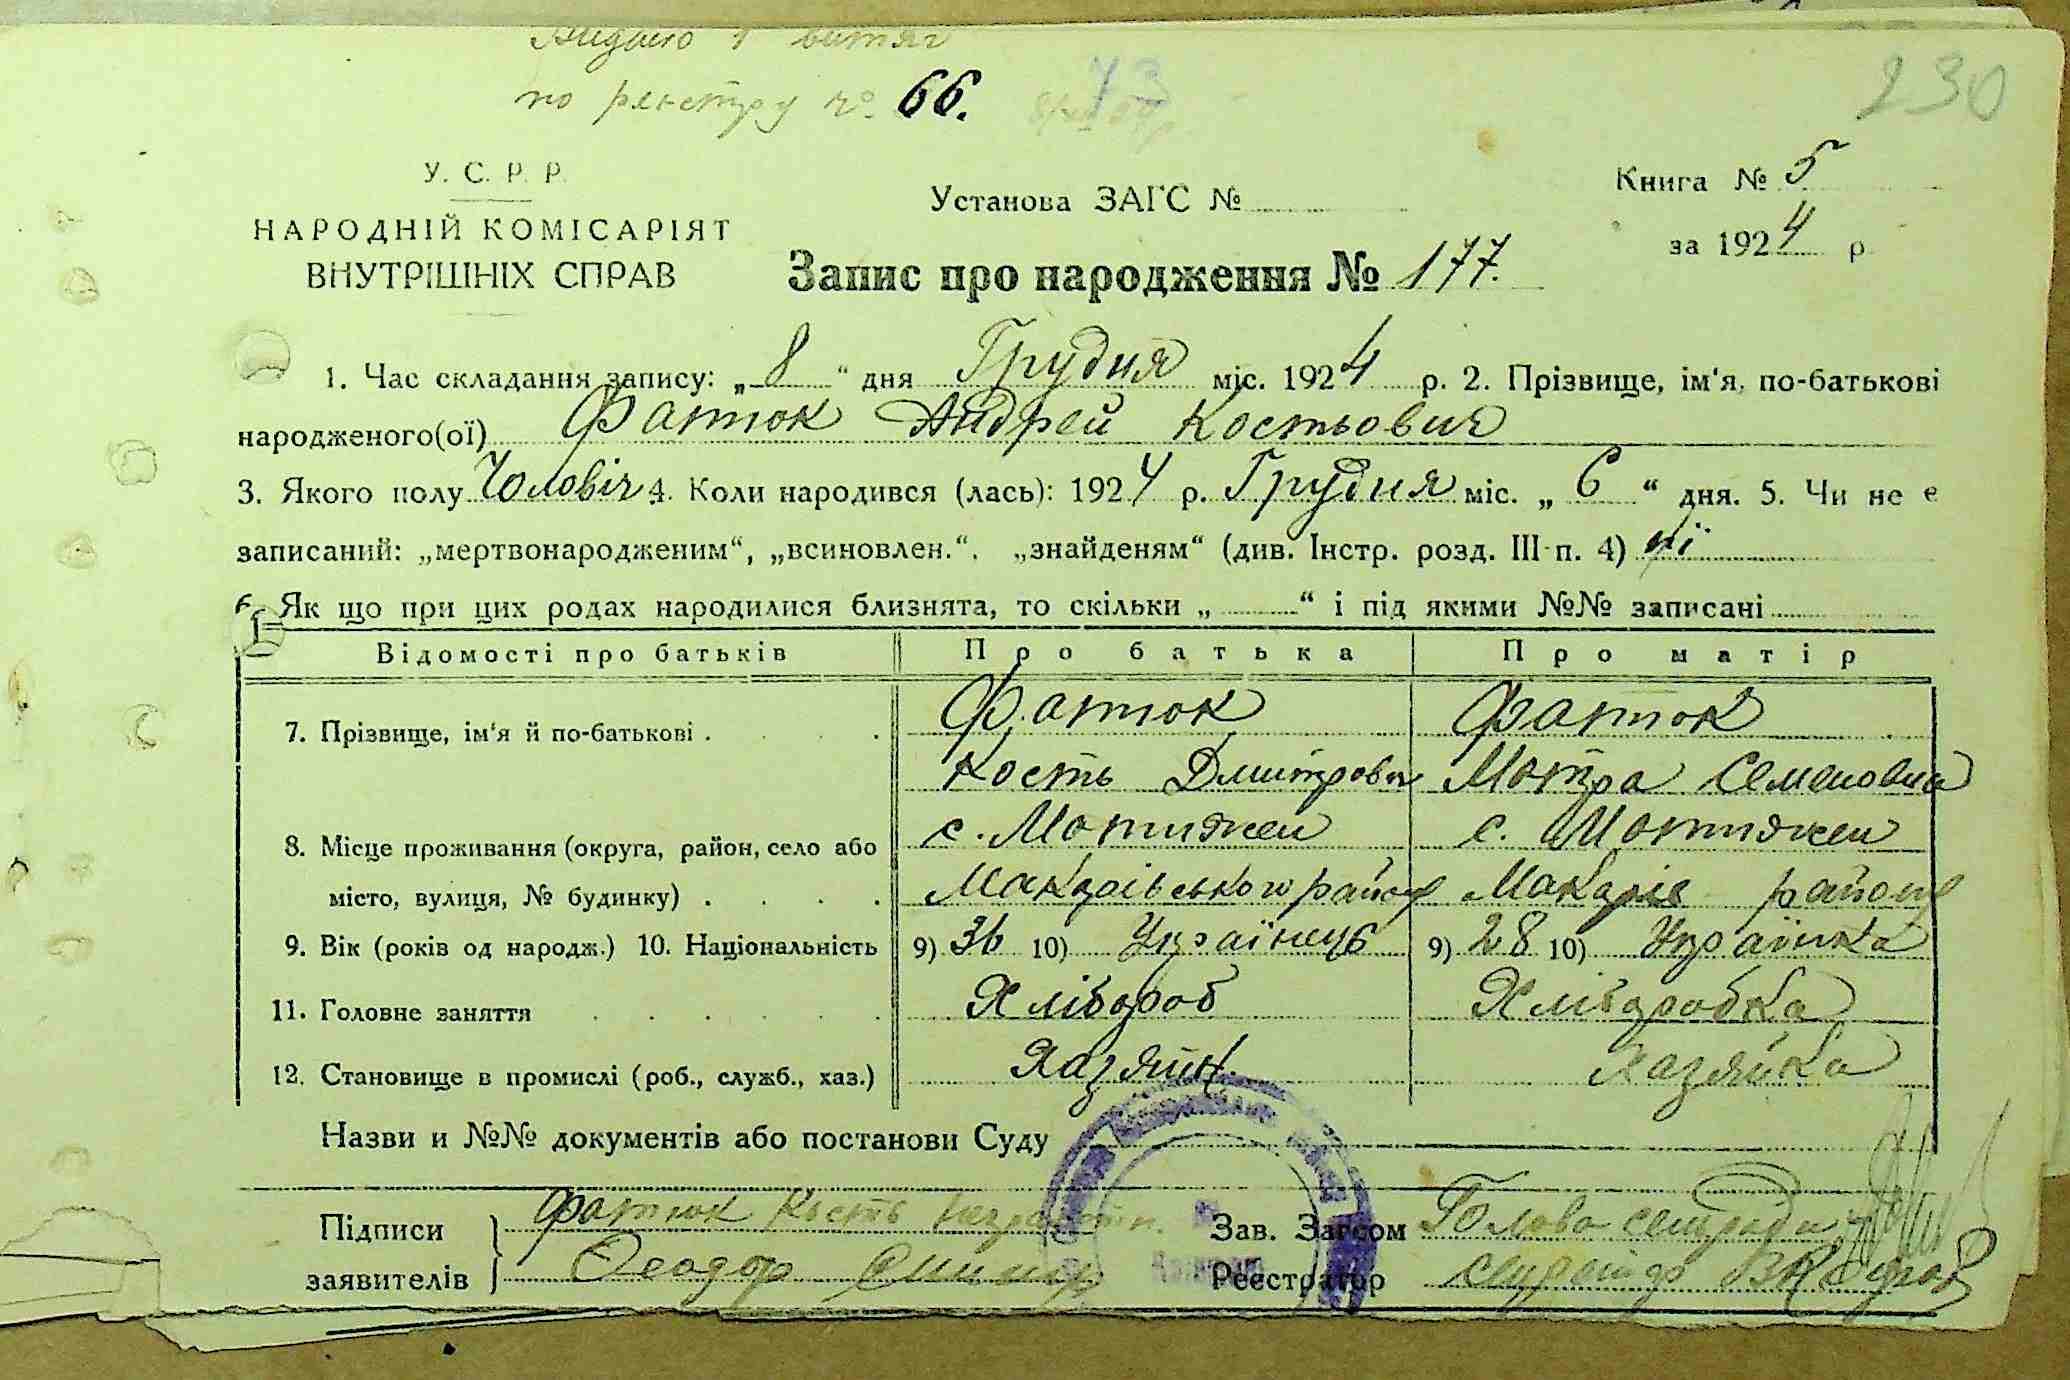 Видано 1 витяг
по реєстру № 66. 43
230
У. С. Р. Р.
НАРОДНІЙ КОМІСАРІЯТ
ВНУТРІШНІХ СПРАВ
Установа ЗАГС №
Книга № 5
за 1924 р
Запис про народження № 177.
1. Час складання запису: „ 8 “ дня Грудня міс. 1924 р. 2. Прізвище, ім'я, по-батькові
народженого(ої) Фатюк Андрей Костьович
3. Якого полу Чоловіч 4. Коли народився (лась): 1924 р. Грудня міс. „ 6 “ дня. 5. Чи не є
записаний: „мертвонародженим“, „всиновлен.“, „знайденям“ (див. Інстр. розд. III п. 4) ні
6. Як що при цих родах народилися близнята, то скільки „ “ і під якими №№ записані
Відомості про батьків Про батька Про матір
7. Прізвище, ім'я й по-батькові . Фатюк Фатюк
Кость Дмитрович Мотра Семеновна
8. Місце проживання (округа, район, село або с. Мотижен с. Мотижен
місто, вулиця, № будинку) Макарівського району Макарів району
9. Вік (років од народж.) 10. Національність 9) 36 10) Українець 9) 28 10) Українка
11. Головне заняття Хлібороб Хліборобка
12. Становище в промислі (роб., служб., хаз.) Хазяїн Хазяйка
Назви и №№ документів або постанови Суду
Підписи Фатюк Кость Зав. Загсом Голова сельради
заявителів Феодор Реєстратор секретар